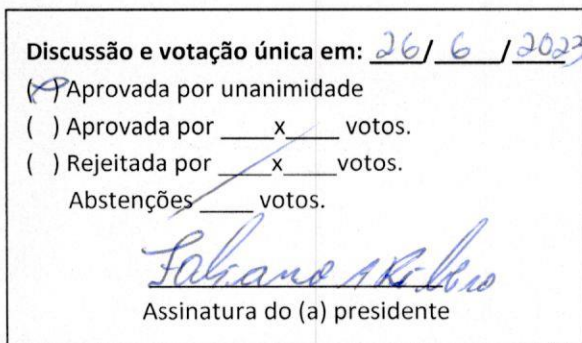 Discussão e votação única em: 26/ 6 /2023
(X) Aprovada por unanimidade
( ) Aprovada por ____x____ votos.
( ) Rejeitada por ____x____votos.
Abstenções ____ votos.
Fabiano A Ribeiro
Assinatura do (a) presidente